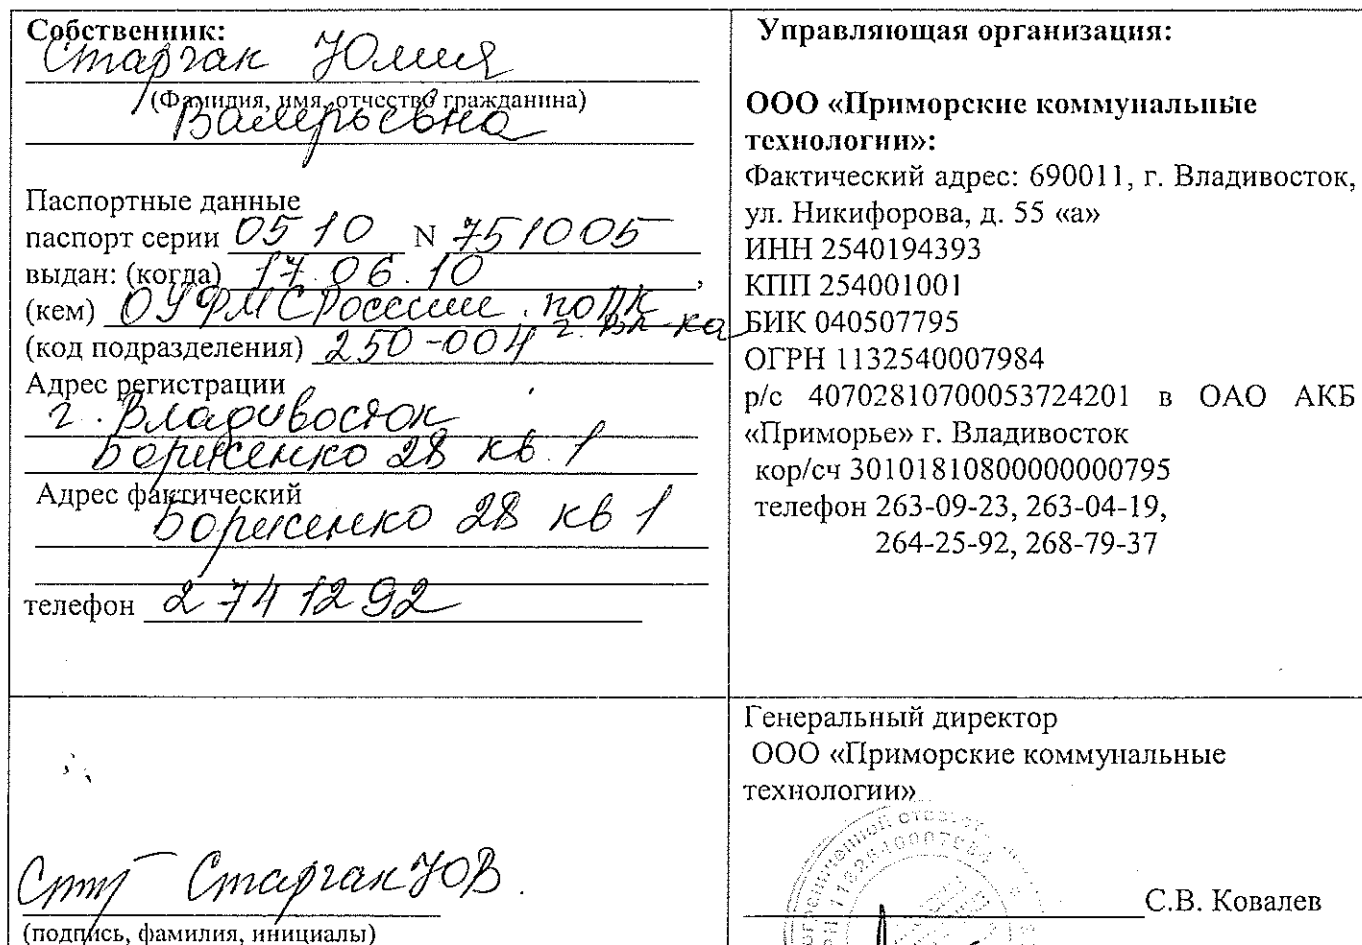 Собственник:
Старчак Юлия
(Фамилия, имя, отчество гражданина)
Валерьевна
Паспортные данные
паспорт серии 0510 N 751005
выдан: (когда) 17.06.10,
(кем) ОУФМС России по ПК
г. Вл-ка
(код подразделения) 250-004
Адрес регистрации
г. Владивосток
Борисенко 28 кв. 1
Адрес фактический
Борисенко 28 кв 1
телефон 2741292
Старчак ЮВ.
(подпись, фамилия, инициалы)
Управляющая организация:
ООО «Приморские коммунальные
технологии»:
Фактический адрес: 690011, г. Владивосток,
ул. Никифорова, д. 55 «а»
ИНН 2540194393
КПП 254001001
БИК 040507795
ОГРН 1132540007984
р/с 40702810700053724201 в ОАО АКБ
«Приморье» г. Владивосток
кор/сч 30101810800000000795
телефон 263-09-23, 263-04-19,
264-25-92, 268-79-37
Генеральный директор
ООО «Приморские коммунальные
технологии»
С.В. Ковалев